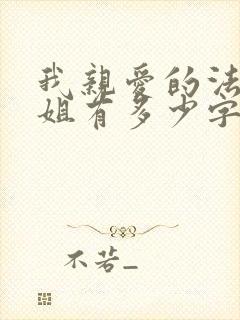 我親愛的法
姐有多少字
不若_